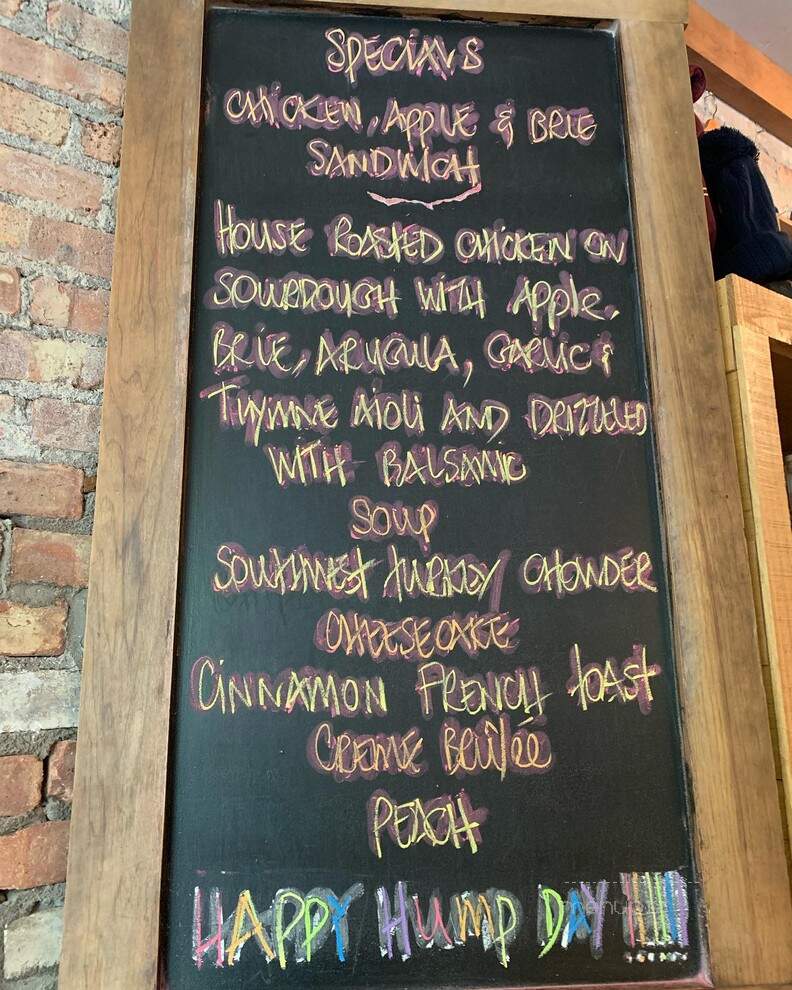 SPECIALS
CHICKEN, APPLE & BRIE
SANDWICH
HOUSE ROASTED CHICKEN ON
SOURDOUGH WITH Apple,
BRIE, ARUGULA, GARLIC &
THYME AIOLI AND DRIZZLED
WITH BALSAMIC
SOUP
SOUTHWEST TURKEY CHOWDER
CHEESECAKE
CINNAMON FRENCH toast
CREME BRÛLÉE
PEACH
HAPPY HUMP DAY !!!!!